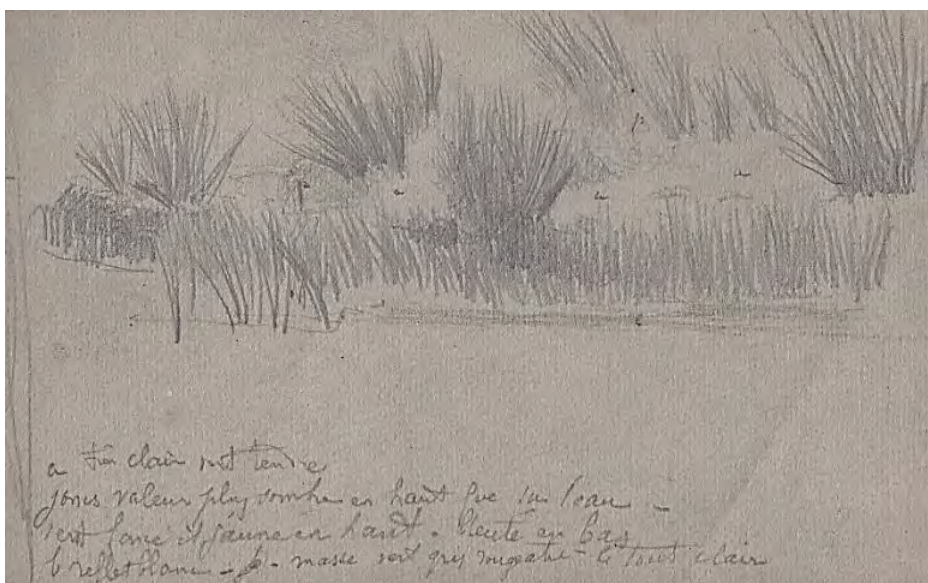 a
p
a
a
a
c
a très clair vert tendre
joncs valeur plus sombre en haut que sur l'eau -
vert foncé et jaune en haut - bleuté en bas
b reflet blanc - p - masse vert gris rougeatre - le tout clair